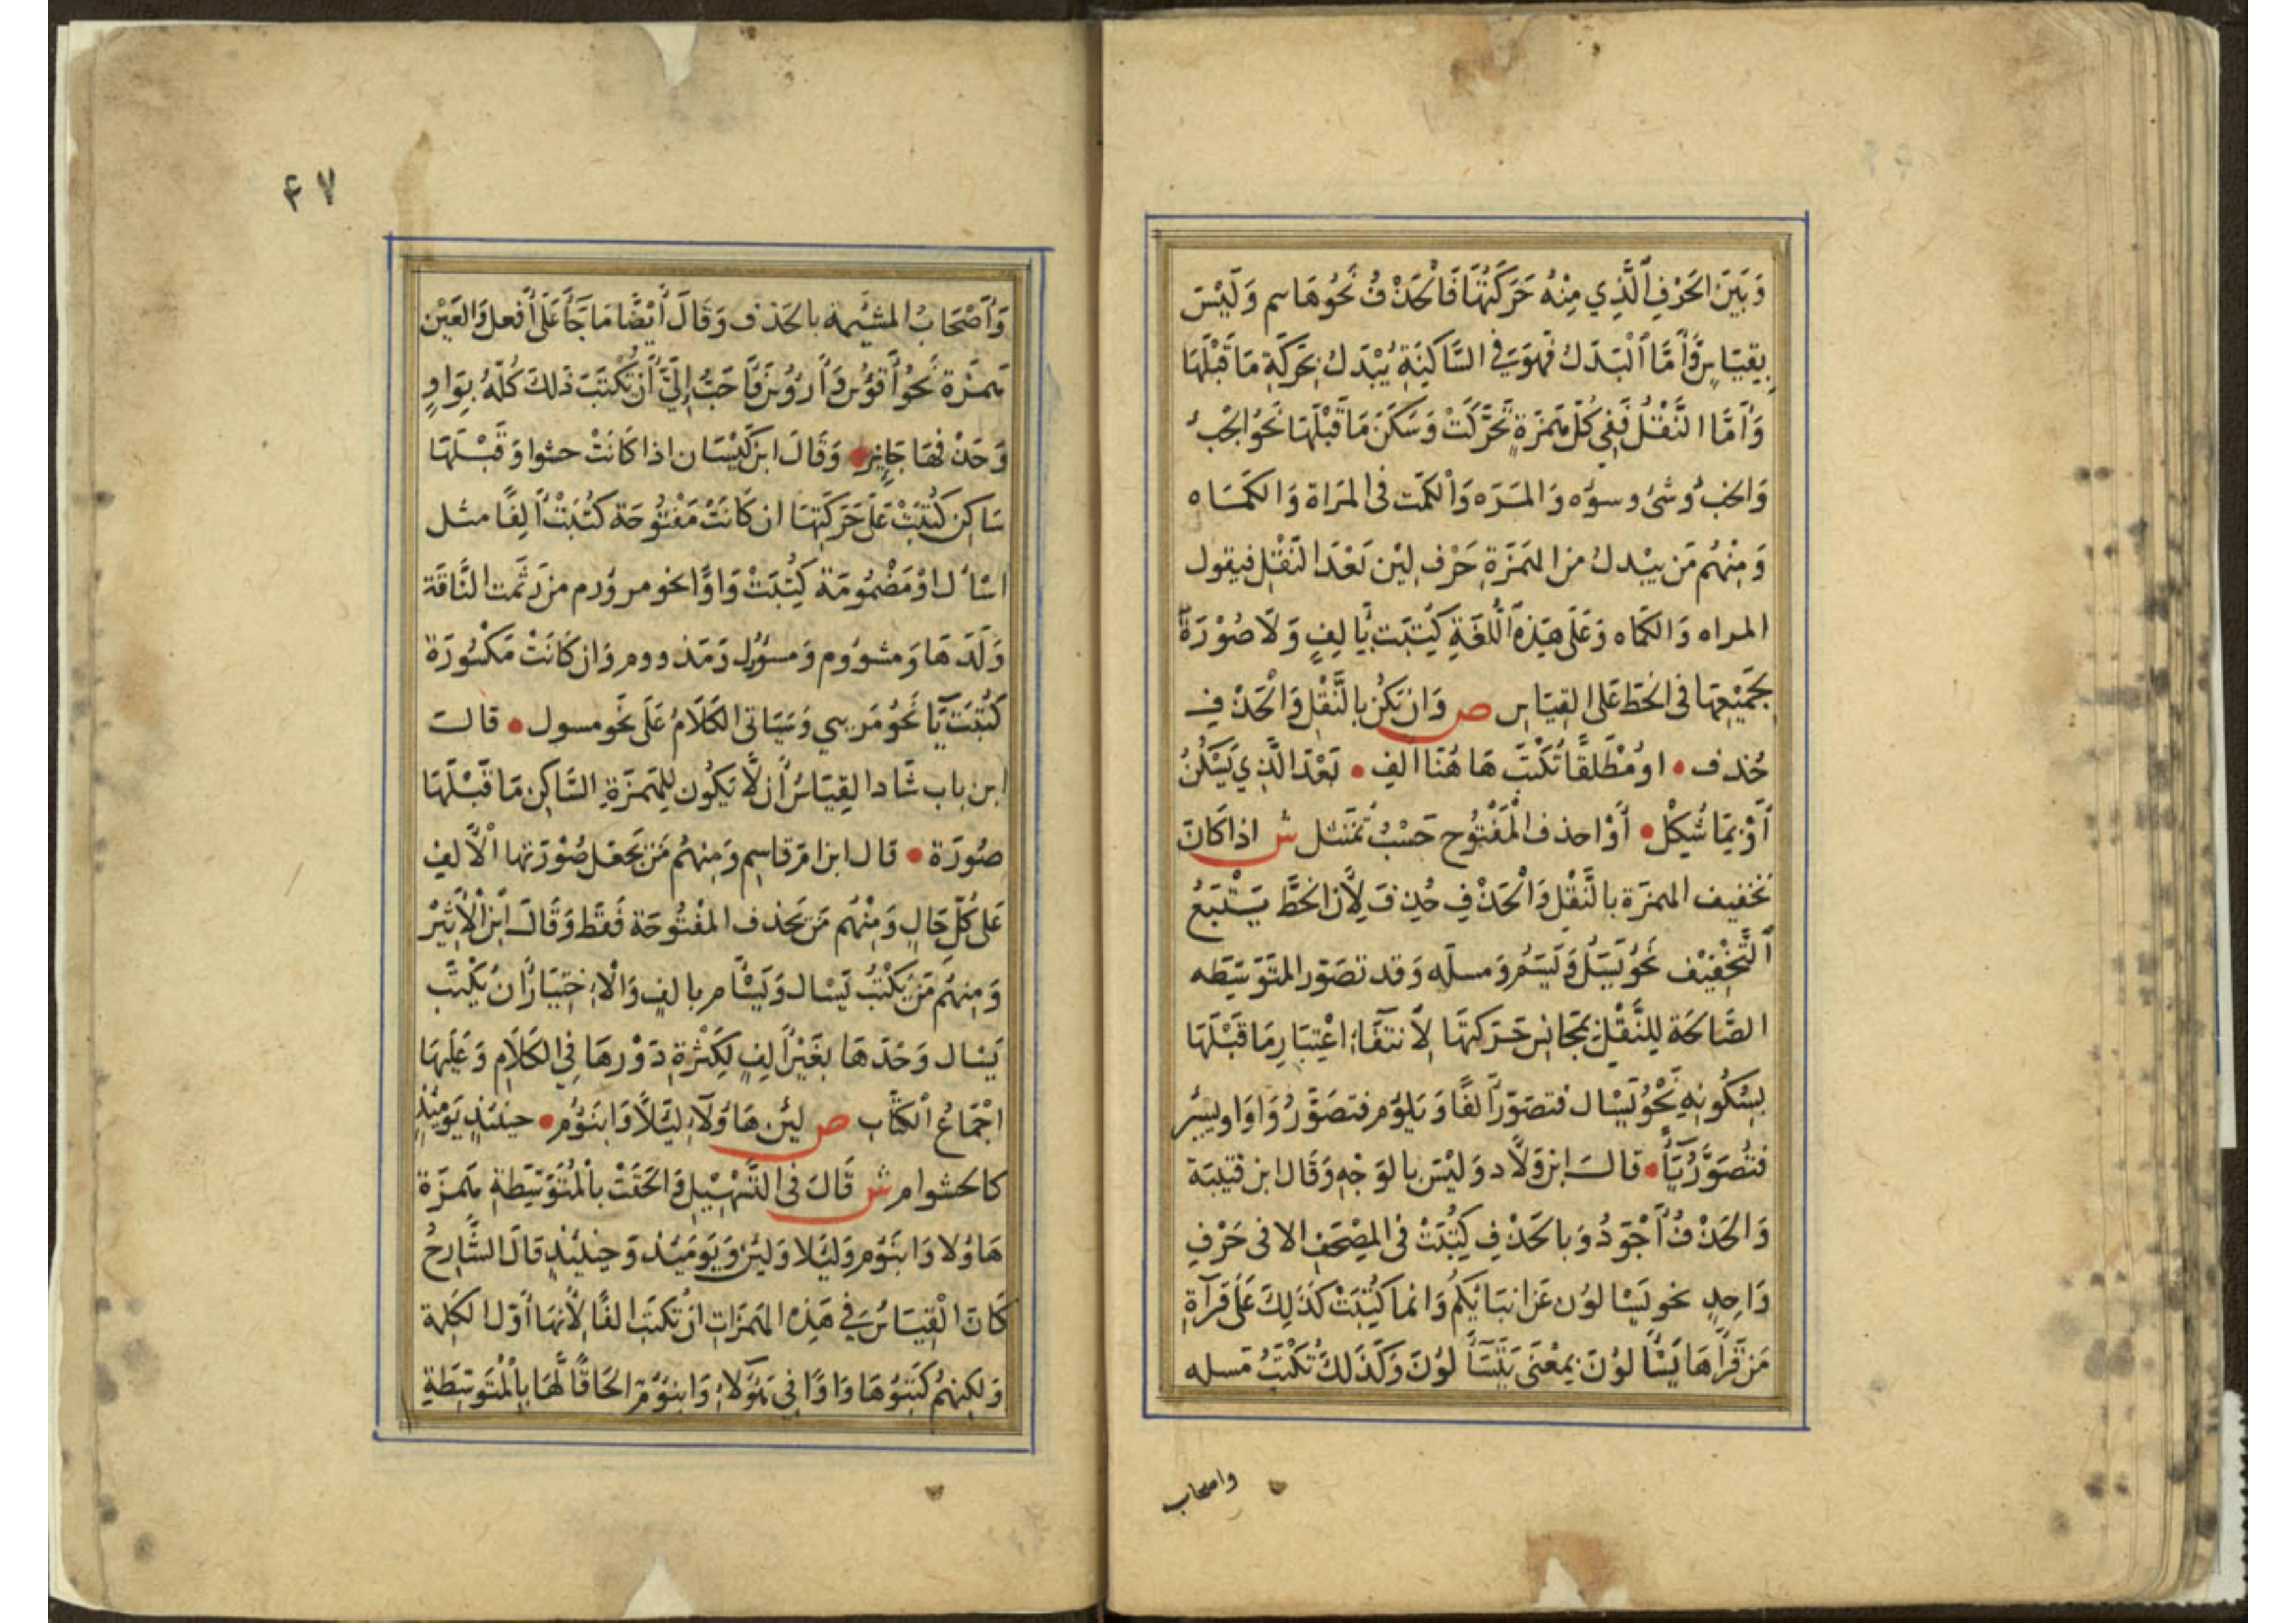 وَبَيْنَ الحَرْفِ الَّذِي مِنْهُ حَرَكَتُهَا فَالْحَذْفُ نَحْوُهَا سم وَلَيْسَ
بِقِيَاسٍ وَأَمَّا الْبَدَلُ فَهوَ فِي السَّاكِنَةِ يُبْدَلُ بِحَرَكَةِ مَا قَبْلَهَا
وَأَمَّا النَّقْلُ فَفِي كُلِّ هَمْزَةٍ تَحَرَّكَتْ وَسَكَنَ مَا قَبْلَهَا نَحْوُ الْجُبْ
وَالخبُ وشئ وسوْه وَالمَرَه وَالْكَمَت فى المَرَاة وَالكَمَاه
وَمِنْهُم مَن يبْدلُ من الهَمْزَةِ حَرْفِ لِيْن بَعْدَ النَّقْلِ فيقول
المراه وَالكَمَاه وَعَلَى هَذِهِ اللُّغَةِ كُتِبَت بِأَلِفٍ وَلَا صُوْرَةَ
بِجَمِيْعِهَا فى الخَطِّ عَلى القِيَاسِ ص وَان تَكُن بِالنَّقْلِ وَالْحَذْفِ
حُذف • اوْ مُطْلَقًا تُكْتَبُ هَاهُنَا الِفْ • بَعْدَ الَّذِي يَسْكُنُ
أَوْ بِمَا شُكِلْ • أَوْ احذف الْمَفْتُوحَ حَسْبُ تَمْتَثل ش اذا كَانَ
تخفيف الهمزَة بالنَّقْلِ وَالْحَذْفِ حُذِفَ لِأَنَّ الخَطَّ يَتْبَعُ
التَّخْفِيْف نَحْوُ يَسَلُ وَيَسَمُ وَمسلَه وَقد تصَوّر المُتَوَسّطه
الصَّالحَة لِلنَّقْلِ بمجَانِس حَرَكتهَا لِانتفَاءِ اعْتِبَارِ مَا قَبْلَهَا
بِسُكُونِهِ نَحْوُ يَسْال فتصَوّر ألفًا وَيَلوُم فتصَوَّرُ وَاوا ويسئر
فتُصَوَّرُ يَاءً • قالَ ابن وَلَّاد وَليْسَ بالوَجْهِ وَقَال ابن قتيبَة
وَالحَذْفُ أَجْوَدُ وَبالحَذْفِ كُتِبَتْ فى المصْحَفِ الا فى حَرْفٍ
وَاحِدٍ نحو يَسْالوُن عَن انبَائكُم وَانما كُتِبَتْ كَذَلِكَ عَلَى قرآةِ
مَنْ قَرَأَهَا يَسَّالوُنَ بِمَعْنَى يَتَسَآلوُنَ وَكَذَلكَ تُكْتَبُ مَسله
واصحاب
٤٧
وَأَصْحَابُ المشئمة بالحَذف وَقَالَ أَيْضًا مَا جَاءَ عَلَى أَفعل وَالعَيْن
همزة نَحْوُ أَقوُس وَأَرؤُس فَأَحَبُّ إِلَيَّ أَنْ تُكْتَبَ ذَلكَ كُلّهُ بِوَاوٍ
وَحَذْفهَا جَايِز • وَقَالَ ابن كَيْسَان اذا كَانَتْ حشوا وَقَبْلَهَا
سَاكِن كُتِبَتْ عَلَى حَرَكَتِهَا ان كَانَتْ مَفْتُوحَة كُتِبَتْ أَلِفًا مثل
اسْأَل اوْ مَضْمُومَة كُتِبَتْ وَاوًا نحو مرؤُم من رَئمت النَّاقَة
وَلَدَهَا وَمشووم وَمسؤُل وَمَذووم وَان كَانَتْ مَكْسُورَة
كُتِبَتْ يَاء نَحْوُ مَرىي وَسَيَاتى الكَلَامُ عَلَى نحو مسول • قالَ
ابن باب شَاد القِيَاسُ أَن لَّا يَكُون لِلهَمْزَةِ السَّاكِن مَا قَبْلَهَا
صُورَة • قال ابن امّ قاسِم وَمِنهُم مَن يَجعَل صُوْرَتها الْأَلِف
عَلى كُلِّ حَالٍ وَمِنْهُم مَن يَحذف المفْتُوحَة فَقَط وَقَالَ ابْنُ الْأَثِيْر
وَمِنهُم مَن يَكْتُبُ يَسْال وَيَسْأم بالفٍ وَالْاِختِيَارُ أَنْ يُكْتَب
يَسْال وَحْدَهَا بِغَيْرِ أَلِفٍ لِكَثْرَةِ دَوْرِهَا فِي الكَلَامِ وَعَلَيْهَا
اجْمَاعُ الكتَّابِ ص لئن هَاؤُلَاءِ لِئَلَّا وَابنَؤُم • حينئذٍ يَومئِذٍ
كالحشوام ش قَالَ فى التَّسْهِيْلِ وَالحَقَتْ بالْمُتَوَسِّطَةِ هَمزَة
هَاؤُلا وَابنَؤُم وَلِيَلا وَلئِنْ وَيَومَئِذ وَحِينَئِذٍ قالَ الشَّارِحُ
كَانَ الْقِيَاسُ فِي هَذِهِ الهَمَزَاتِ أنْ تكتبَ الفًا لِأَنهَا أوّل الكَلِمة
وَلكِنهُم كَتَبُوهَا وَاوًا فِي هَؤُلَاءِ وَابنؤُم الحَاقًا لَّهَا بالْمُتَوَسِّطَةِ